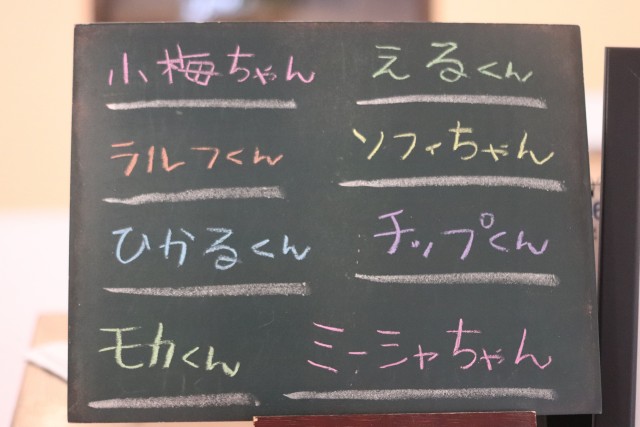 小梅ちゃん
えるくん
ラルフくん
ソフィちゃん
ひかるくん
チップくん
モカくん
ミーシャちゃん